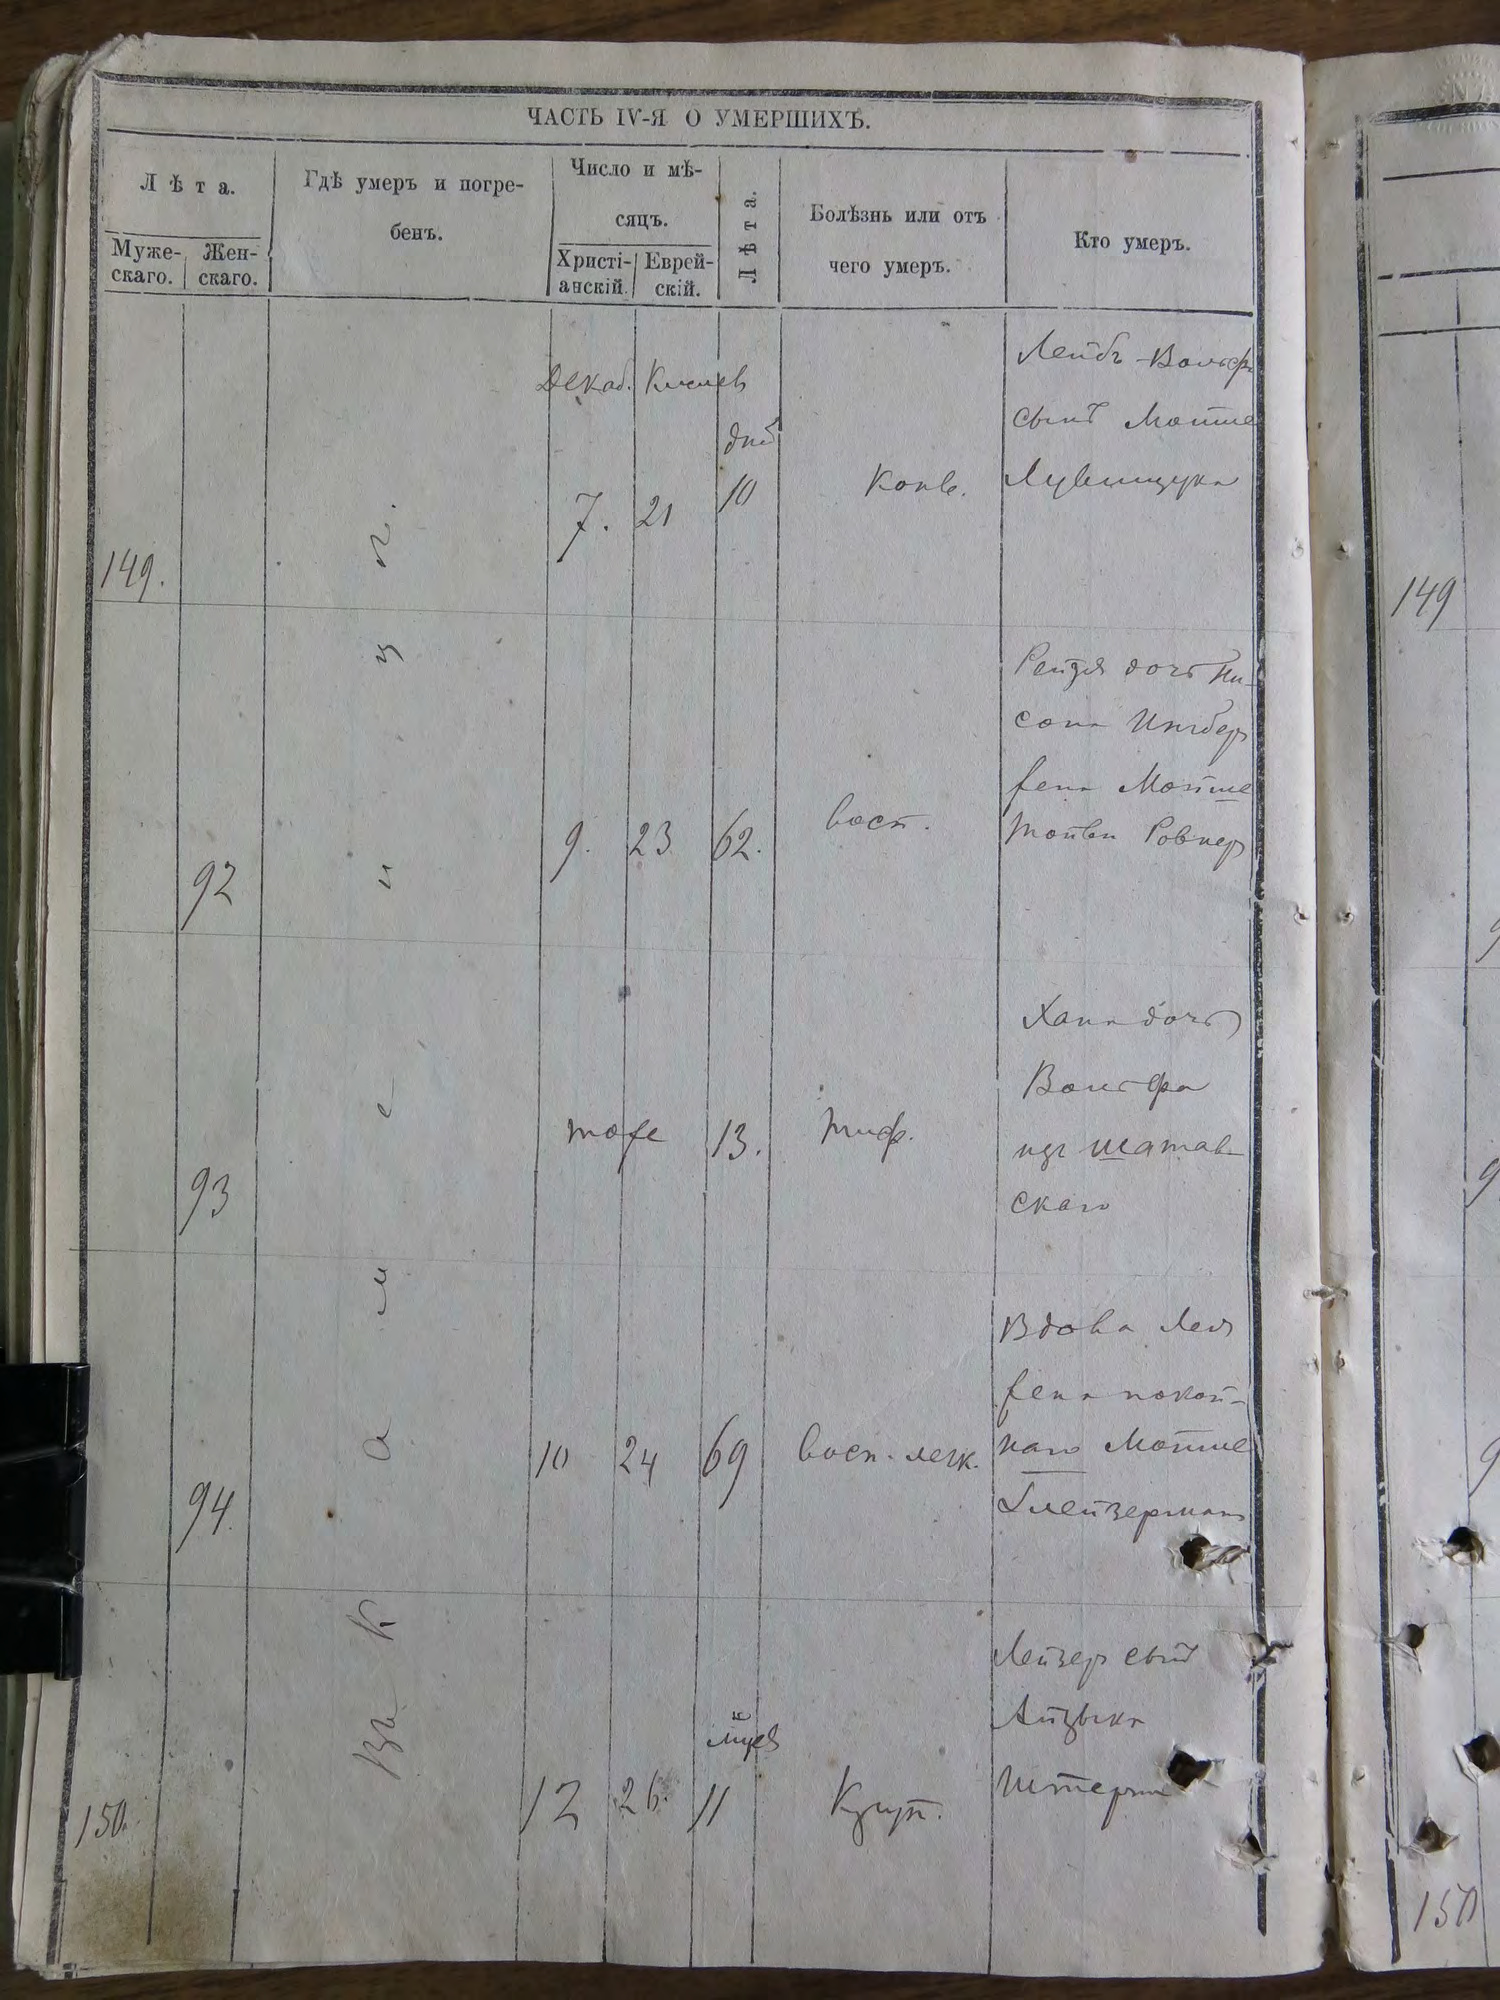 ЧАСТЬ IV-Я О УМЕРШИХЪ.
Лѣта.
Мужескаго.
Женскаго.
Гдѣ умеръ и погре-
бенъ.
Число и мѣ-
сяцъ.
Христі-
анскій.
Еврей-
скій.
Лѣта.
Болѣзнь или отъ
чего умеръ.
Кто умеръ.
Въ Каменцѣ п.
Декаб. Кислев
149.
7.
21
дней
10
Конв.
Лейбъ-Вольфъ
сынъ Мошке
92
9.
23
62.
восп.
Рейзя дочь Ни-
сона Ингберъ
жена Мошке
Ровнеръ
93
тоже
13.
тиф.
Хана дочь
Вольфа
из Шатав-
скаго
94.
10
24
69
восп. легк.
Вдова Лея
жена покой-
наго Мошке
Глейзерманъ
150.
12
26.
мѣсцев
11
Круп.
Лейзеръ сынъ
Айзыка
Штерна
149
150